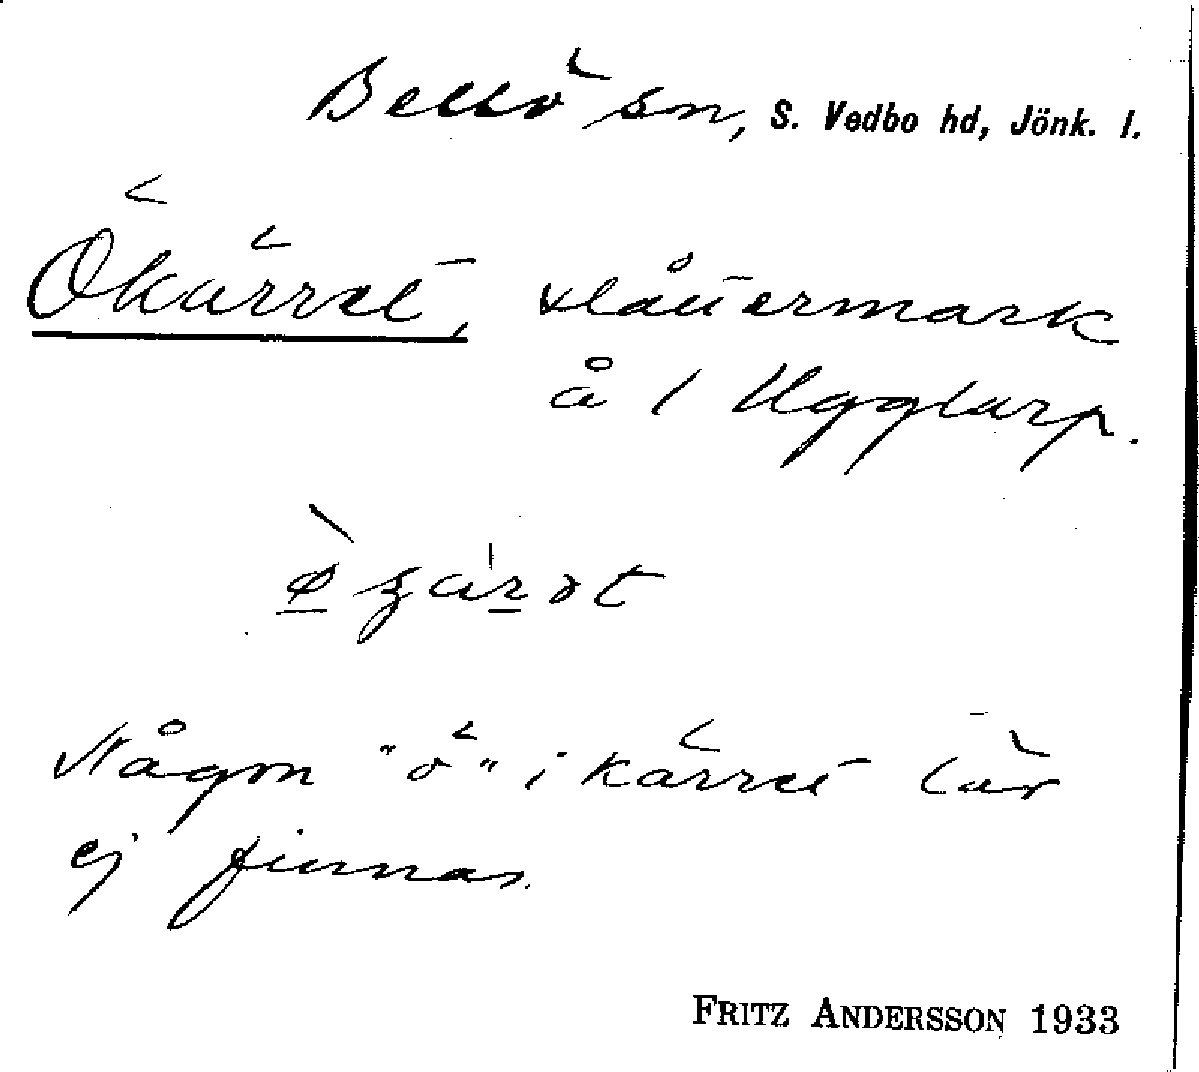 Bellö sn, S. Vedbo hd, Jönk. l.
Ökärret, slåttermark
å 1 Uggtarp.
Någon "ö" i kärret lär
ej finnas.
FRITZ ANDERSSON 1933